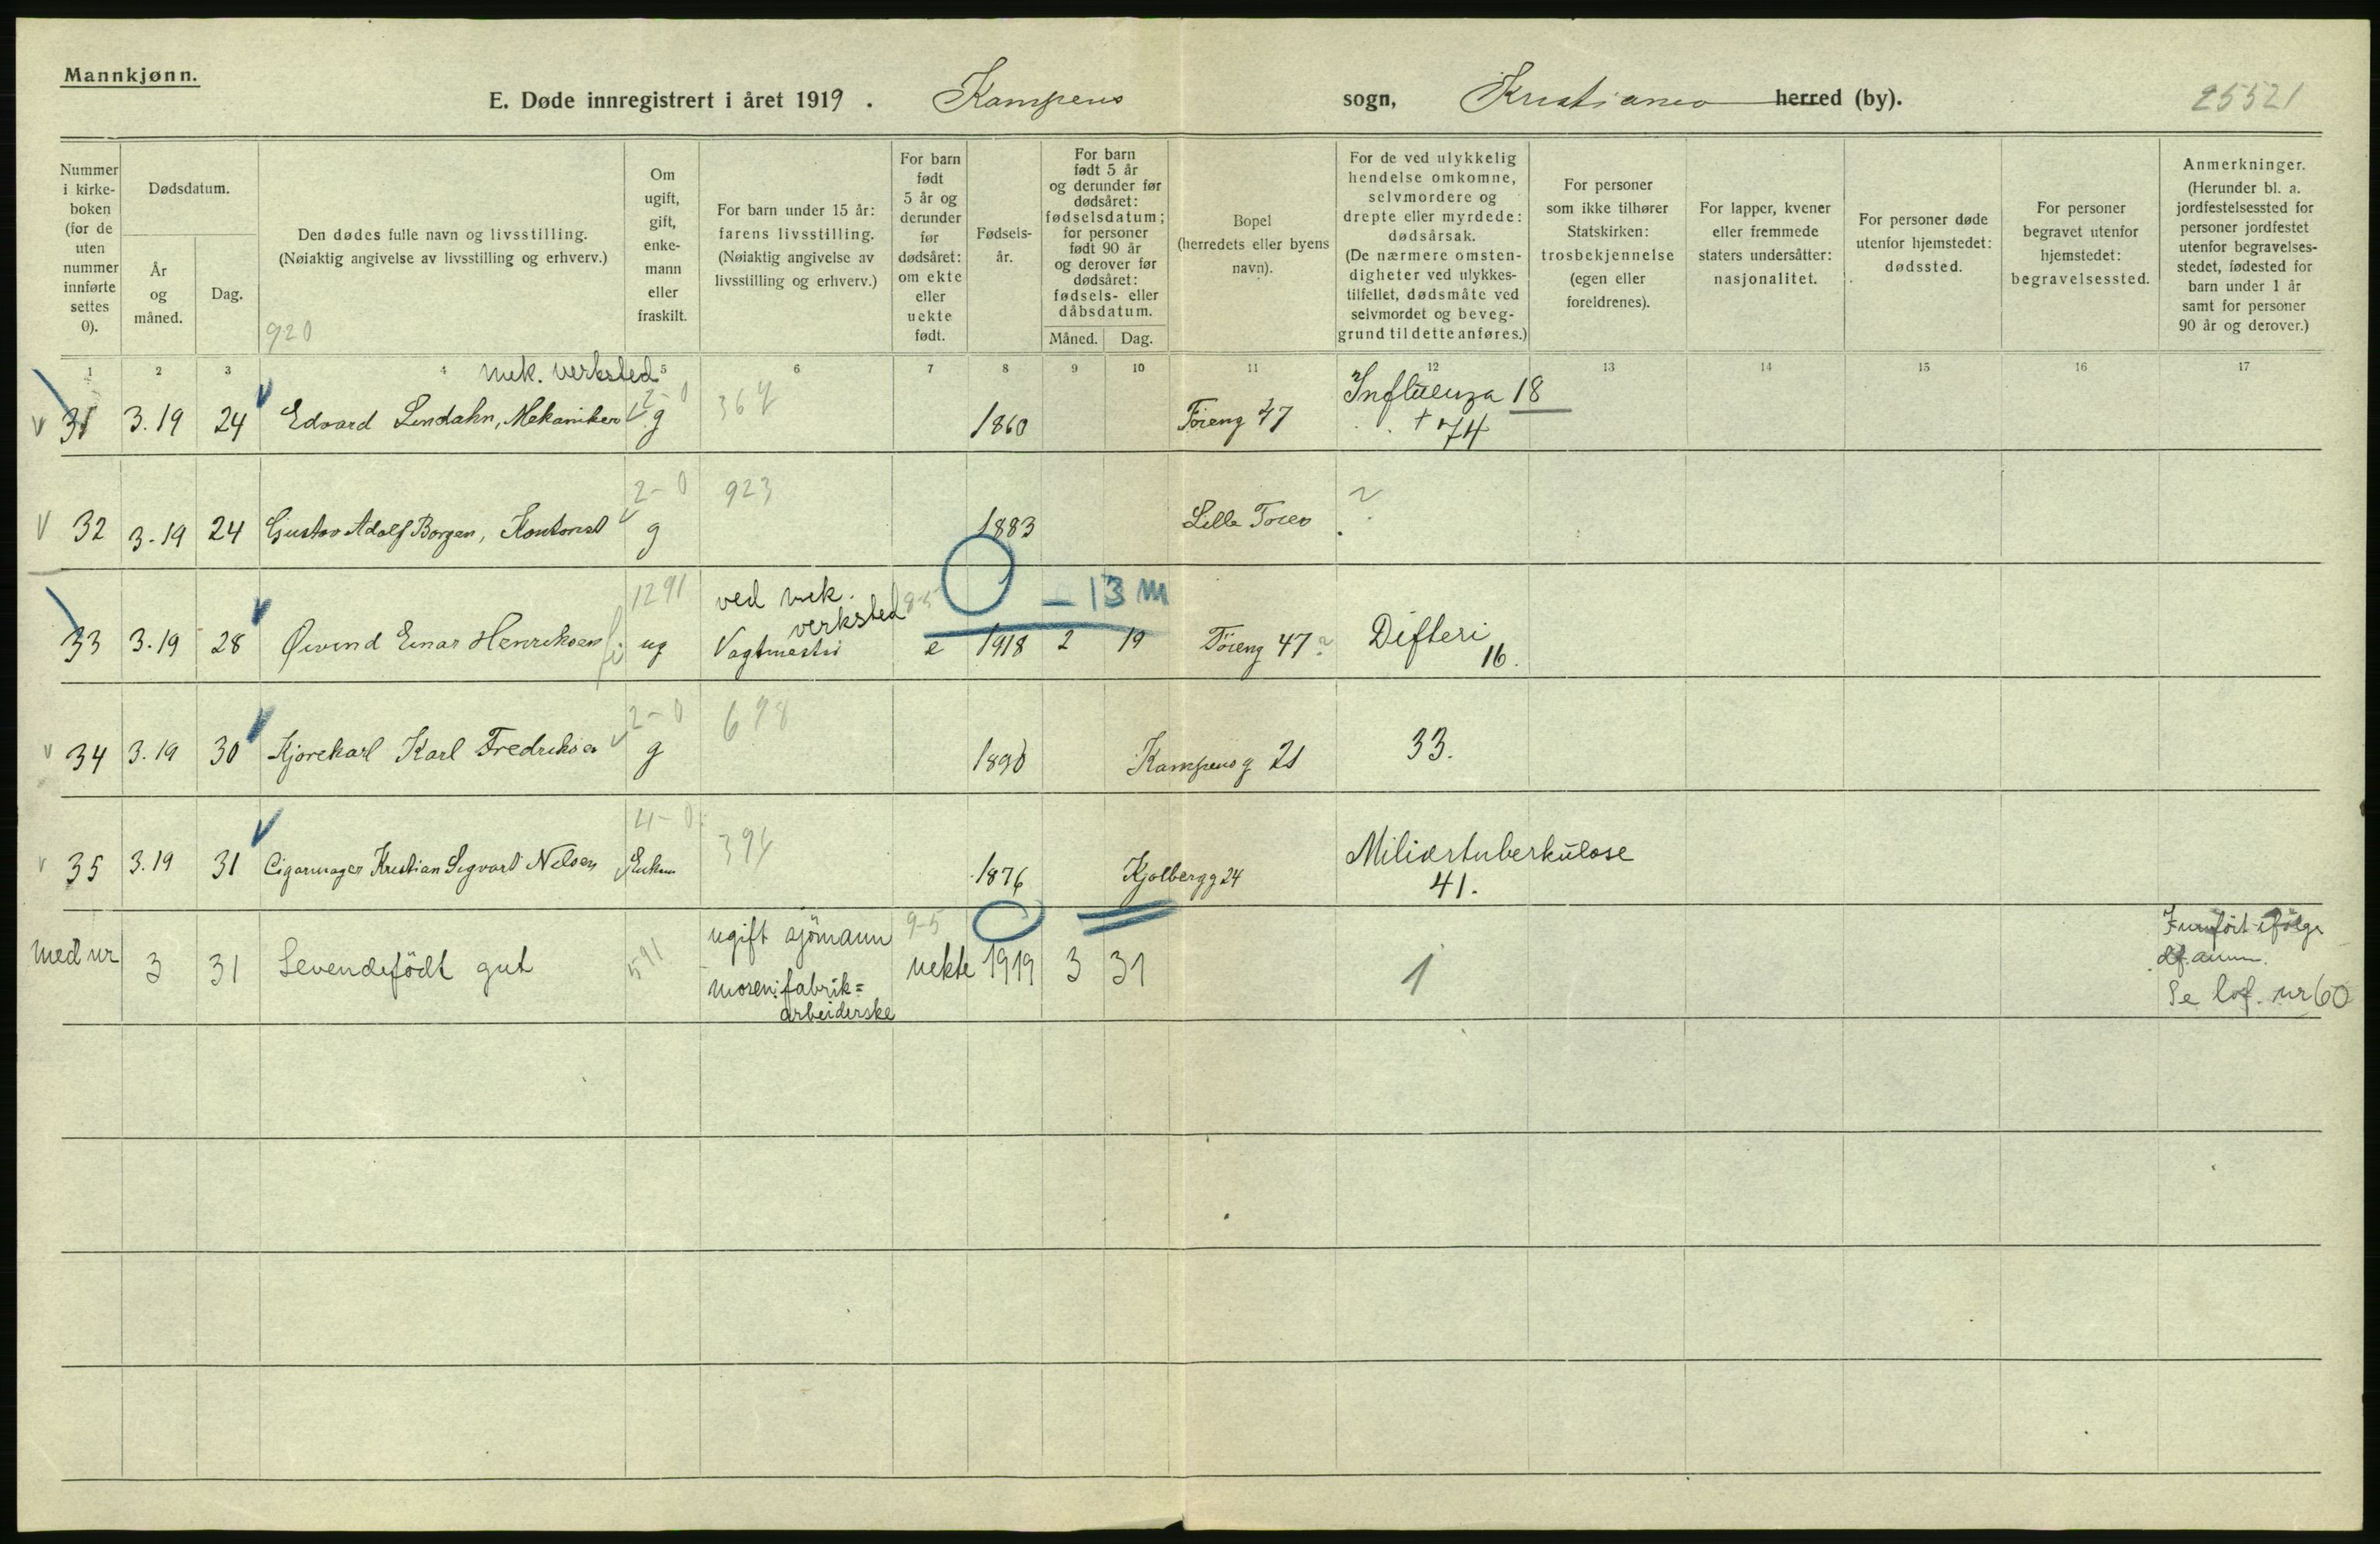 Mannkjønn.
E. Døde innregistrert i året 1919. Kampens sogn, Kristiania herred (by). 25521
Nummer i kirke-boken (for de uten nummer innførte settes 0).
Dødsdatum.
År og måned.
Dag.
Den dødes fulle navn og livsstilling.
(Nøiaktig angivelse av livsstilling og erhverv.)
920
Om ugift, gift, enke-mann eller fraskilt.
For barn under 15 år: farens livsstilling.
(Nøiaktig angivelse av livsstilling og erhverv.)
For barn født 5 år og derunder før dødsåret: om ekte eller uekte født.
Fødsels-år.
For barn født 5 år og derunder før dødsåret: fødselsdatum; for personer født 90 år og derover før dødsåret: fødsels- eller dåbsdatum.
Måned. Dag.
Bopel (herredets eller byens navn).
For de ved ulykkelig hendelse omkomne, selvmordere og drepte eller myrdede: dødsårsak.
(De nærmere omsten-digheter ved ulykkes-tilfellet, dødsmåte ved selvmordet og beveg-grund til dette anføres.)
For personer som ikke tilhører Statskirken: trosbekjennelse (egen eller foreldrenes).
For lapper, kvener eller fremmede staters undersåtter: nasjonalitet.
For personer døde utenfor hjemstedet: dødssted.
For personer begravet utenfor hjemstedet: begravelsessted.
Anmerkninger.
(Herunder bl. a. jordfestelsessted for personer jordfestet utenfor begravelses-stedet, fødested for barn under 1 år samt for personer 90 år og derover.)
1 2 3 4 5 6 7 8 9 10 11 12 13 14 15 16 17
mek. verksted 2-0 Influenza 18
v 31 3.19 24 Edvard Lindahn, Mekaniker g 364 1860 Töieng 47 + 74
2-0 923
v 32 3-19 24 Gustav Adolf Borgen, Kontorist g 1883 Lille Töien ?
1291 ved mek. verksted 9-5 – 13 m
33 3.19 28 Øivind Einar Henriksen ug Vagtmester e 1918 2 19 Töieng 47 ? Difteri 16.
2-0 698
v 34 3.19 30 Kjørekarl Karl Fredriksen g 1890 Kampens g 21 33.
4-0 394
v 35 3.19 31 Cigarmager Kristian Sigvart Nilsen Enkem 1876 Kjølbergg 24 Miliærtuberkulose 41.
med nr 3 31 Levendefödt gut 591 ugift sjömann 9-5 uekte 1919 3 31 1
moren: fabrik=
arbeiderske
Innfört ifölge
df. anm.
Se lof. nr 60